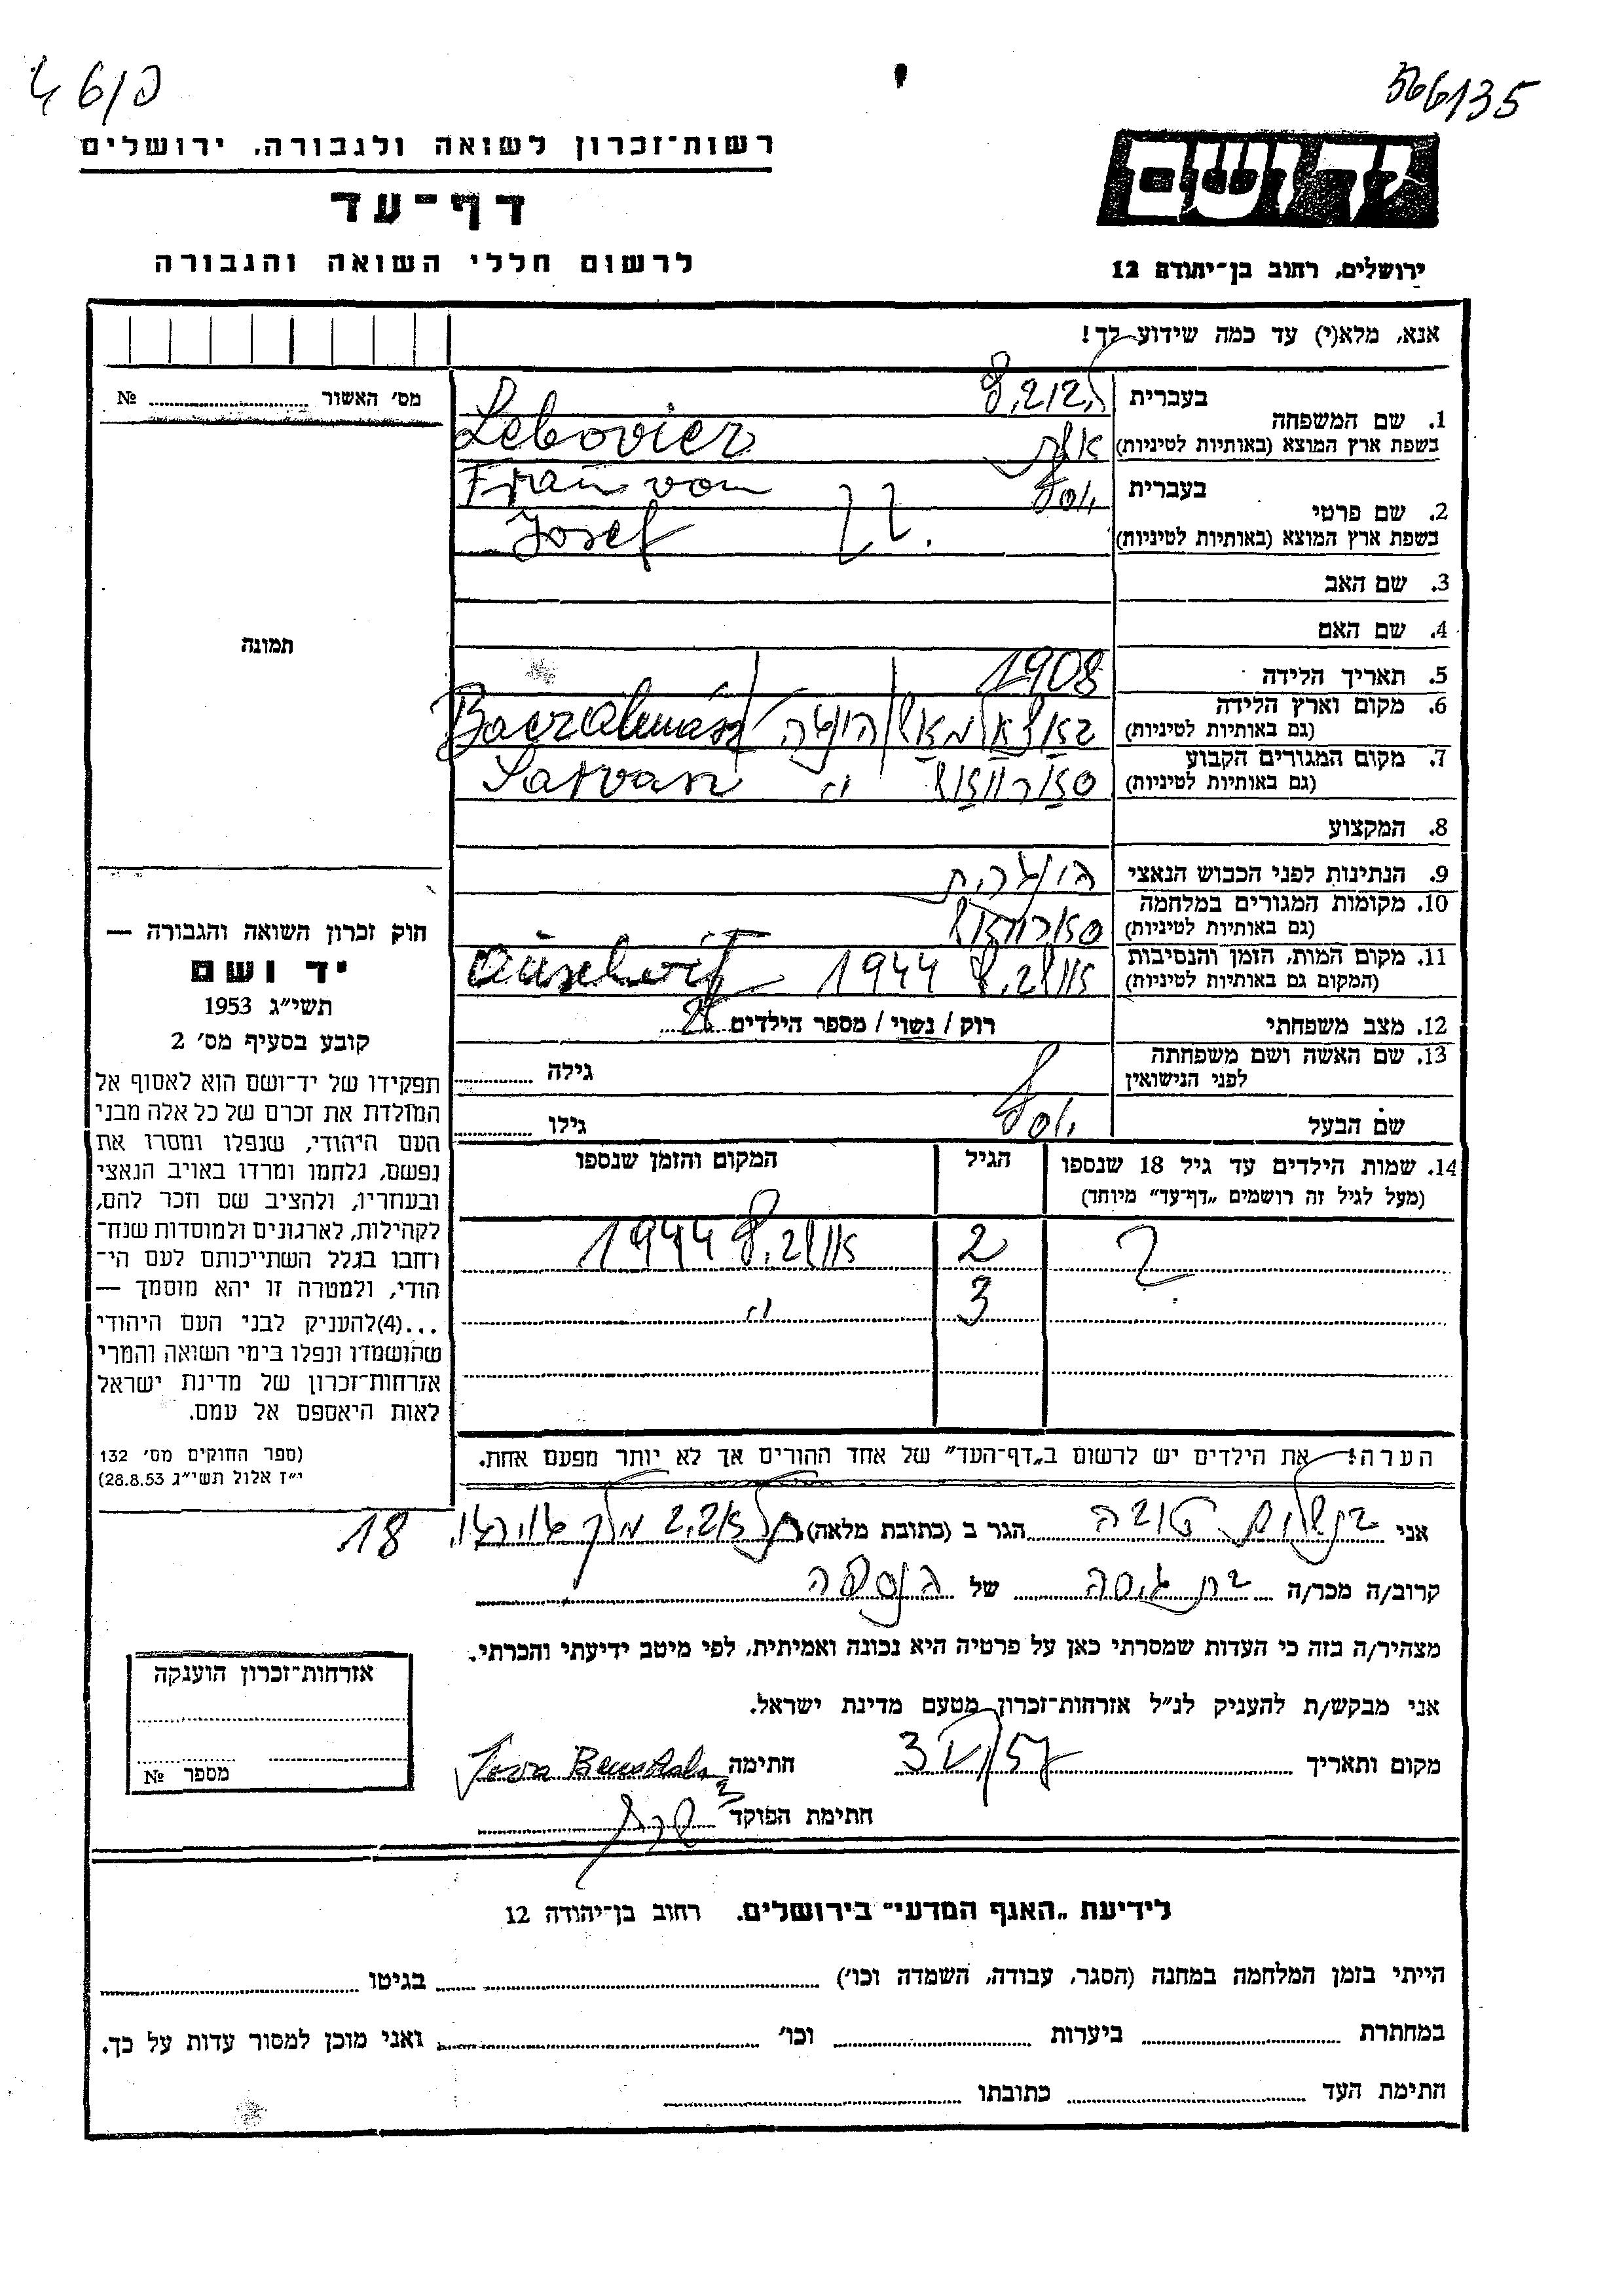 566135
רשות־זכרון לשואה ולגבורה, ירושלים
דף־עד
לרשום חללי השואה והגבורה
יד ושם
ירושלים, רחוב בן־יהודה 12
אנא, מלא(י) עד כמה שידוע לך!
מס' האשור № 
1. שם המשפחה
בעברית
בשפת ארץ המוצא (באותיות לטיניות) אשת
Lebovicz
Frau von
2. שם פרטי
בעברית יוסף
בשפת ארץ המוצא (באותיות לטיניות)
Josef
3. שם האב
4. שם האם
תמונה
5. תאריך הלידה 1908
6. מקום וארץ הלידה
(גם באותיות לטיניות) הונגריה
7. מקום המגורים הקבוע
(גם באותיות לטיניות) סארוואש " Sarvas
8. המקצוע
9. הנתינות לפני הכבוש הנאצי הונגרית
10. מקומות המגורים במלחמה
(גם באותיות לטיניות) סארוואש
11. מקום המות, הזמן והנסיבות
(המקום גם באותיות לטיניות) 1944 Auschwitz
12. מצב משפחתי רוק / נשוי / מספר הילדים 2
13. שם האשה ושם משפחתה
לפני הנישואין גילה
שם הבעל יוסף גילו
14. שמות הילדים עד גיל 18 שנספו
(מעל לגיל זה רושמים "דף־עד" מיוחד)
הגיל
המקום והזמן שנספו
? 2 1944
3 "
הערה: את הילדים יש לרשום ב"דף־העד" של אחד ההורים אך לא יותר מפעם אחת.
חוק זכרון השואה והגבורה —
יד ושם
תשי"ג 1953
קובע בסעיף מס' 2
תפקידו של יד־ושם הוא לאסוף אל
המולדת את זכרם של כל אלה מבני
העם היהודי, שנפלו ומסרו את
נפשם, נלחמו ומרדו באויב הנאצי
ובעוזריו, ולהציב שם וזכר להם,
לקהילות, לארגונים ולמוסדות שנח־
רחבו בגלל השתייכותם לעם הי־
הודי, ולמטרה זו יהא מוסמך —
...(4)להעניק לבני העם היהודי
שהושמדו ונפלו בימי השואה והמרי
אזרחות־זכרון של מדינת ישראל
לאות היאספם אל עמם.
(ספר החוקים מס' 132
י"ז אלול תשי"ג 28.8.53)
אני בן שלום טובה הגר ב (כתובת מלאה) 18
קרוב/ה מכר/ה בת גיסה של הנספה
מצהיר/ה בזה כי העדות שמסרתי כאן על פרטיה היא נכונה ואמיתית, לפי מיטב ידיעתי והכרתי.
אני מבקש/ת להעניק לנ"ל אזרחות־זכרון מטעם מדינת ישראל.
מקום ותאריך 3 V/57 חתימה
חתימת הפוקד
אזרחות־זכרון הוענקה
מספר №
לידיעת "האגף המדעי" בירושלים. רחוב בן־יהודה 12
הייתי בזמן המלחמה במחנה (הסגר, עבודה, השמדה וכו') בגיטו
במחתרת ביערות וכו' ואני מוכן למסור עדות על כך.
התימת העד כתובתו